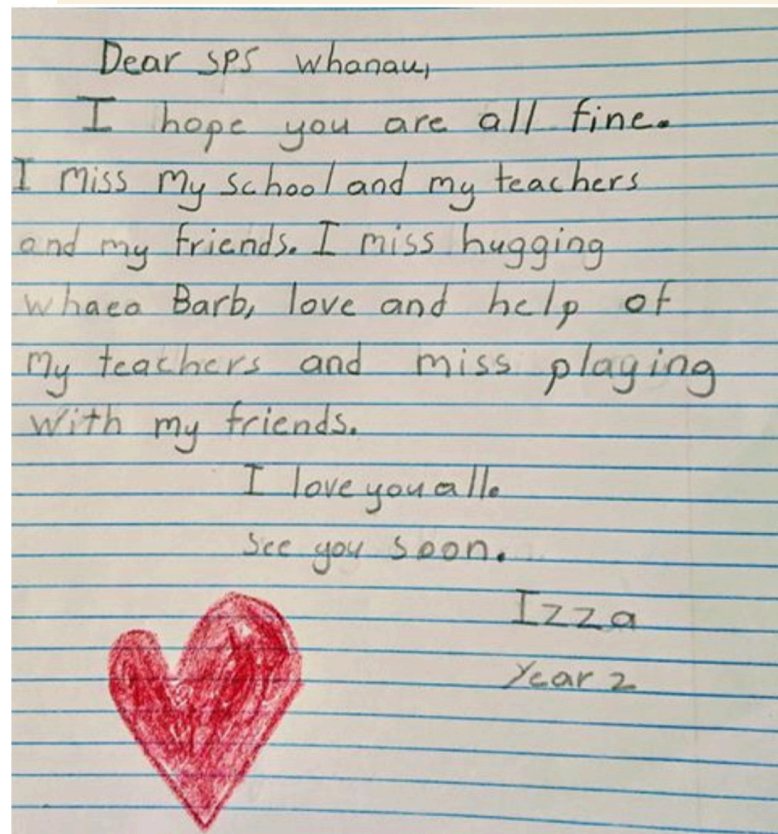 Dear SPS whanau,
I hope you are all fine.
I miss my school and my teachers
and my friends. I miss hugging
whaea Barb, love and help of
my teachers and miss playing
with my friends.
I love you all.
See you soon.
Izza
Year 2